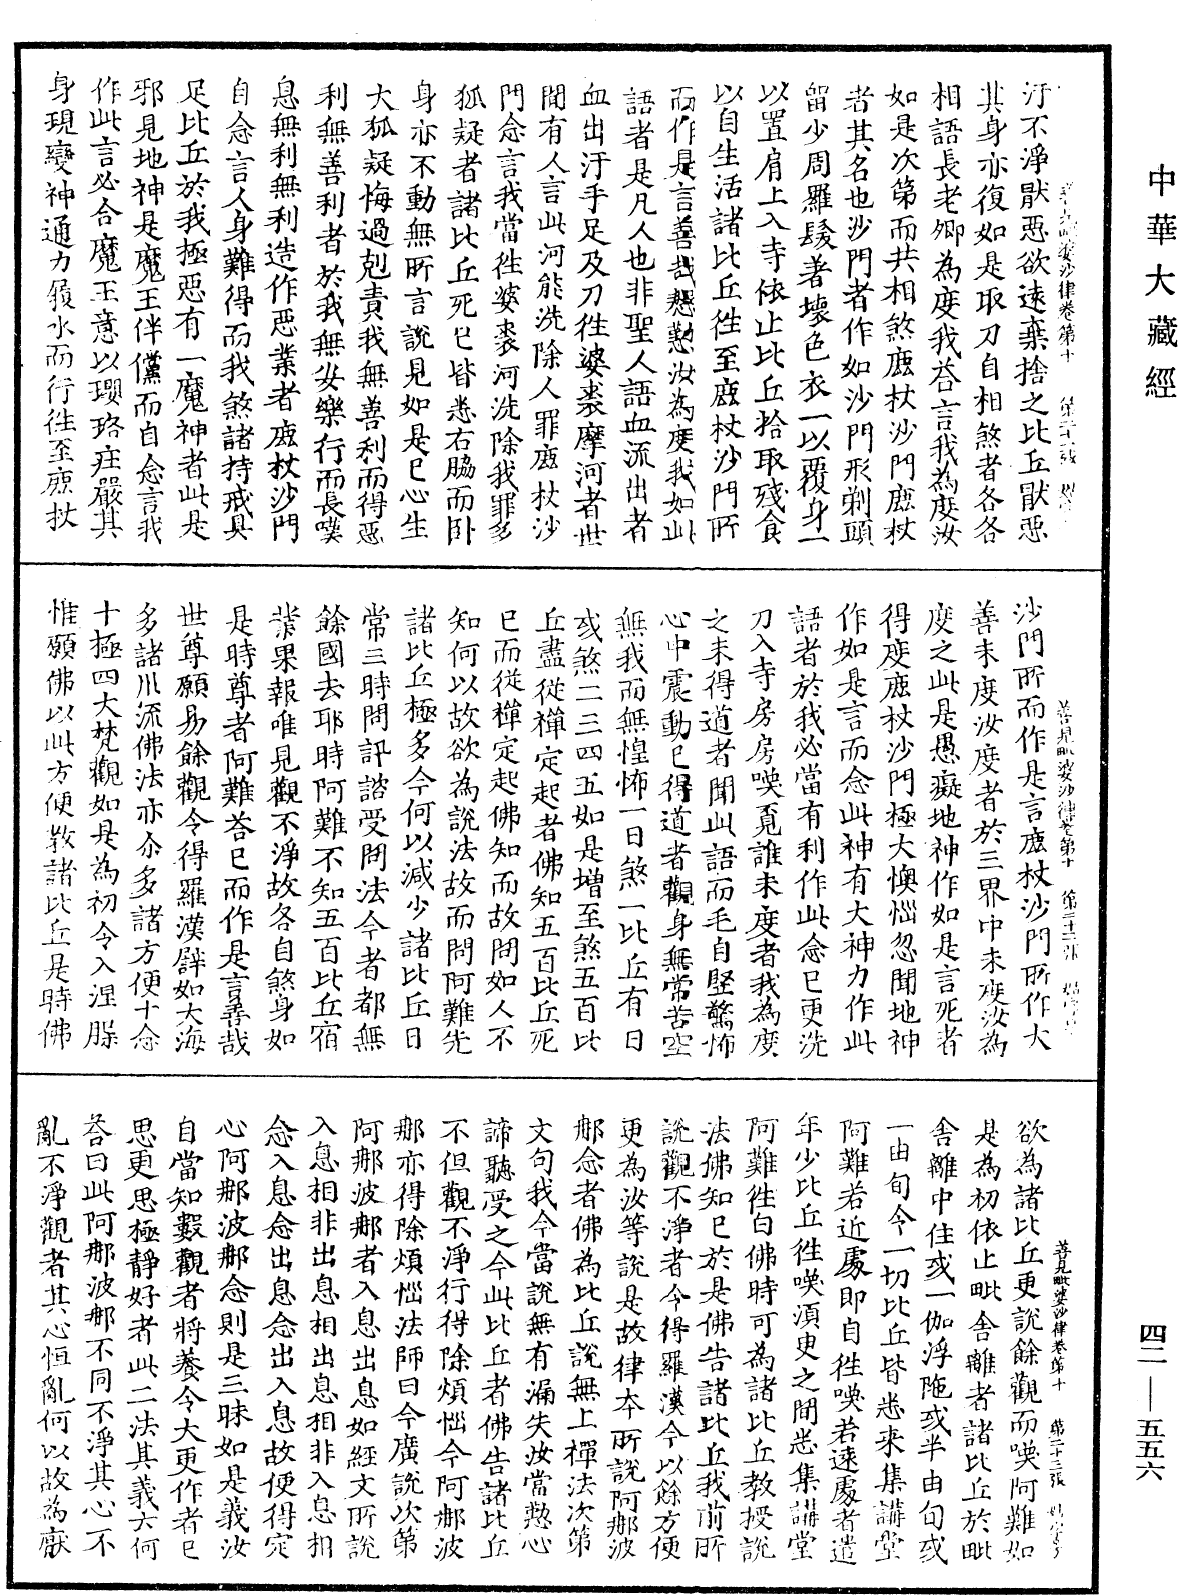 中華大藏經
汙不淨厭惡欲遠棄捨之比丘厭惡
其身亦復如是取刀自相煞者各各
相語長老卿為度我荅言我為度汝
如是次第而共相煞鹿杖沙門鹿杖
者其名也沙門者作如沙門形剃頭
留少周羅髮著壞色衣一以覆身一
以置肩上入寺依止比丘拾取殘食
以自生活諸比丘往至鹿杖沙門所
而作是言善哉慇懃汝為度我如此
語者是凡人也非聖人語血流出者
血出汙手足及刀往婆裘摩河者世
間有人言此河能洗除人罪鹿杖沙
門念言我當往婆裘河洗除我罪多
狐疑者諸比丘死已皆悉右脇而卧
身亦不動無所言說見如是已心生
大狐疑悔過剋責我無善利而得惡
利無善利者於我無安樂行而長嘆
息無利無利造作惡業者鹿杖沙門
自念言人身難得而我煞諸持戒具
足比丘於我極惡有一魔神者此是
邪見地神是魔王伴儻而自念言我
作此言必合魔王意以瓔珞莊嚴其
身現變神通力履水而行往至鹿杖
善見毗婆沙律卷第十 第二十二張
沙門所而作是言鹿杖沙門所作大
善未度汝度者於三界中未度汝為
度之此是愚癡地神作如是言死者
得度鹿杖沙門極大懊惱忽聞地神
作如是言而念此神有大神力作此
語者於我必當有利作此念已更洗
刀入寺房房喚覓誰未度者我為度
之未得道者聞此語而毛自竪驚怖
心中震動已得道者觀身無常苦空
無我而無惶怖一日煞一比丘有日
或煞二三四五如是增至煞五百比
丘盡從禪定起者佛知五百比丘死
已而從禪定起佛知而故問如人不
知何以故欲為說法故而問阿難先
諸比丘極多今何以減少諸比丘日
常三時問訊諮受問法今者都無
餘國去耶時阿難不知五百比丘宿
業果報唯見觀不淨故各自煞身如
是時尊者阿難荅已而作是言善哉
世尊願易餘觀令得羅漢譬如大海
多諸川流佛法亦尒多諸方便十念
十極四大梵觀如是為初令入涅槃
惟願佛以此方便教諸比丘是時佛
善見毗婆沙律卷第十 第二十三張
欲為諸比丘更說餘觀而喚阿難如
是為初依止毗舍離者諸比丘於毗
舍離中住或一伽浮陁或半由旬或
一由旬令一切比丘皆悉來集講堂
阿難若近處即自往喚若遠處者遣
年少比丘往喚須臾之間悉集講堂
阿難往白佛時可為諸比丘教授說
法佛知已於是佛告諸比丘我前所
說觀不淨者令得羅漢今以餘方便
更為汝等說是故律本所說阿那波
那念者佛為比丘說無上禪法次第
文句我今當說無有漏失汝當懃心
諦聽受之今此比丘者佛告諸比丘
不但觀不淨行得除煩惱今阿那波
那亦得除煩惱法師曰今廣說次第
阿那波那者入息出息如經文所說
入息相非出息相出息相非入息相
念入息念出息念出入息故便得定
心阿那波那念則是三昧如是義汝
自當知數觀者將養令大更作者已
思更思極靜好者此二法其義云何
荅曰此阿那波那不同不淨其心不
亂不淨觀者其心恒亂何以故為厭
四二—五五六